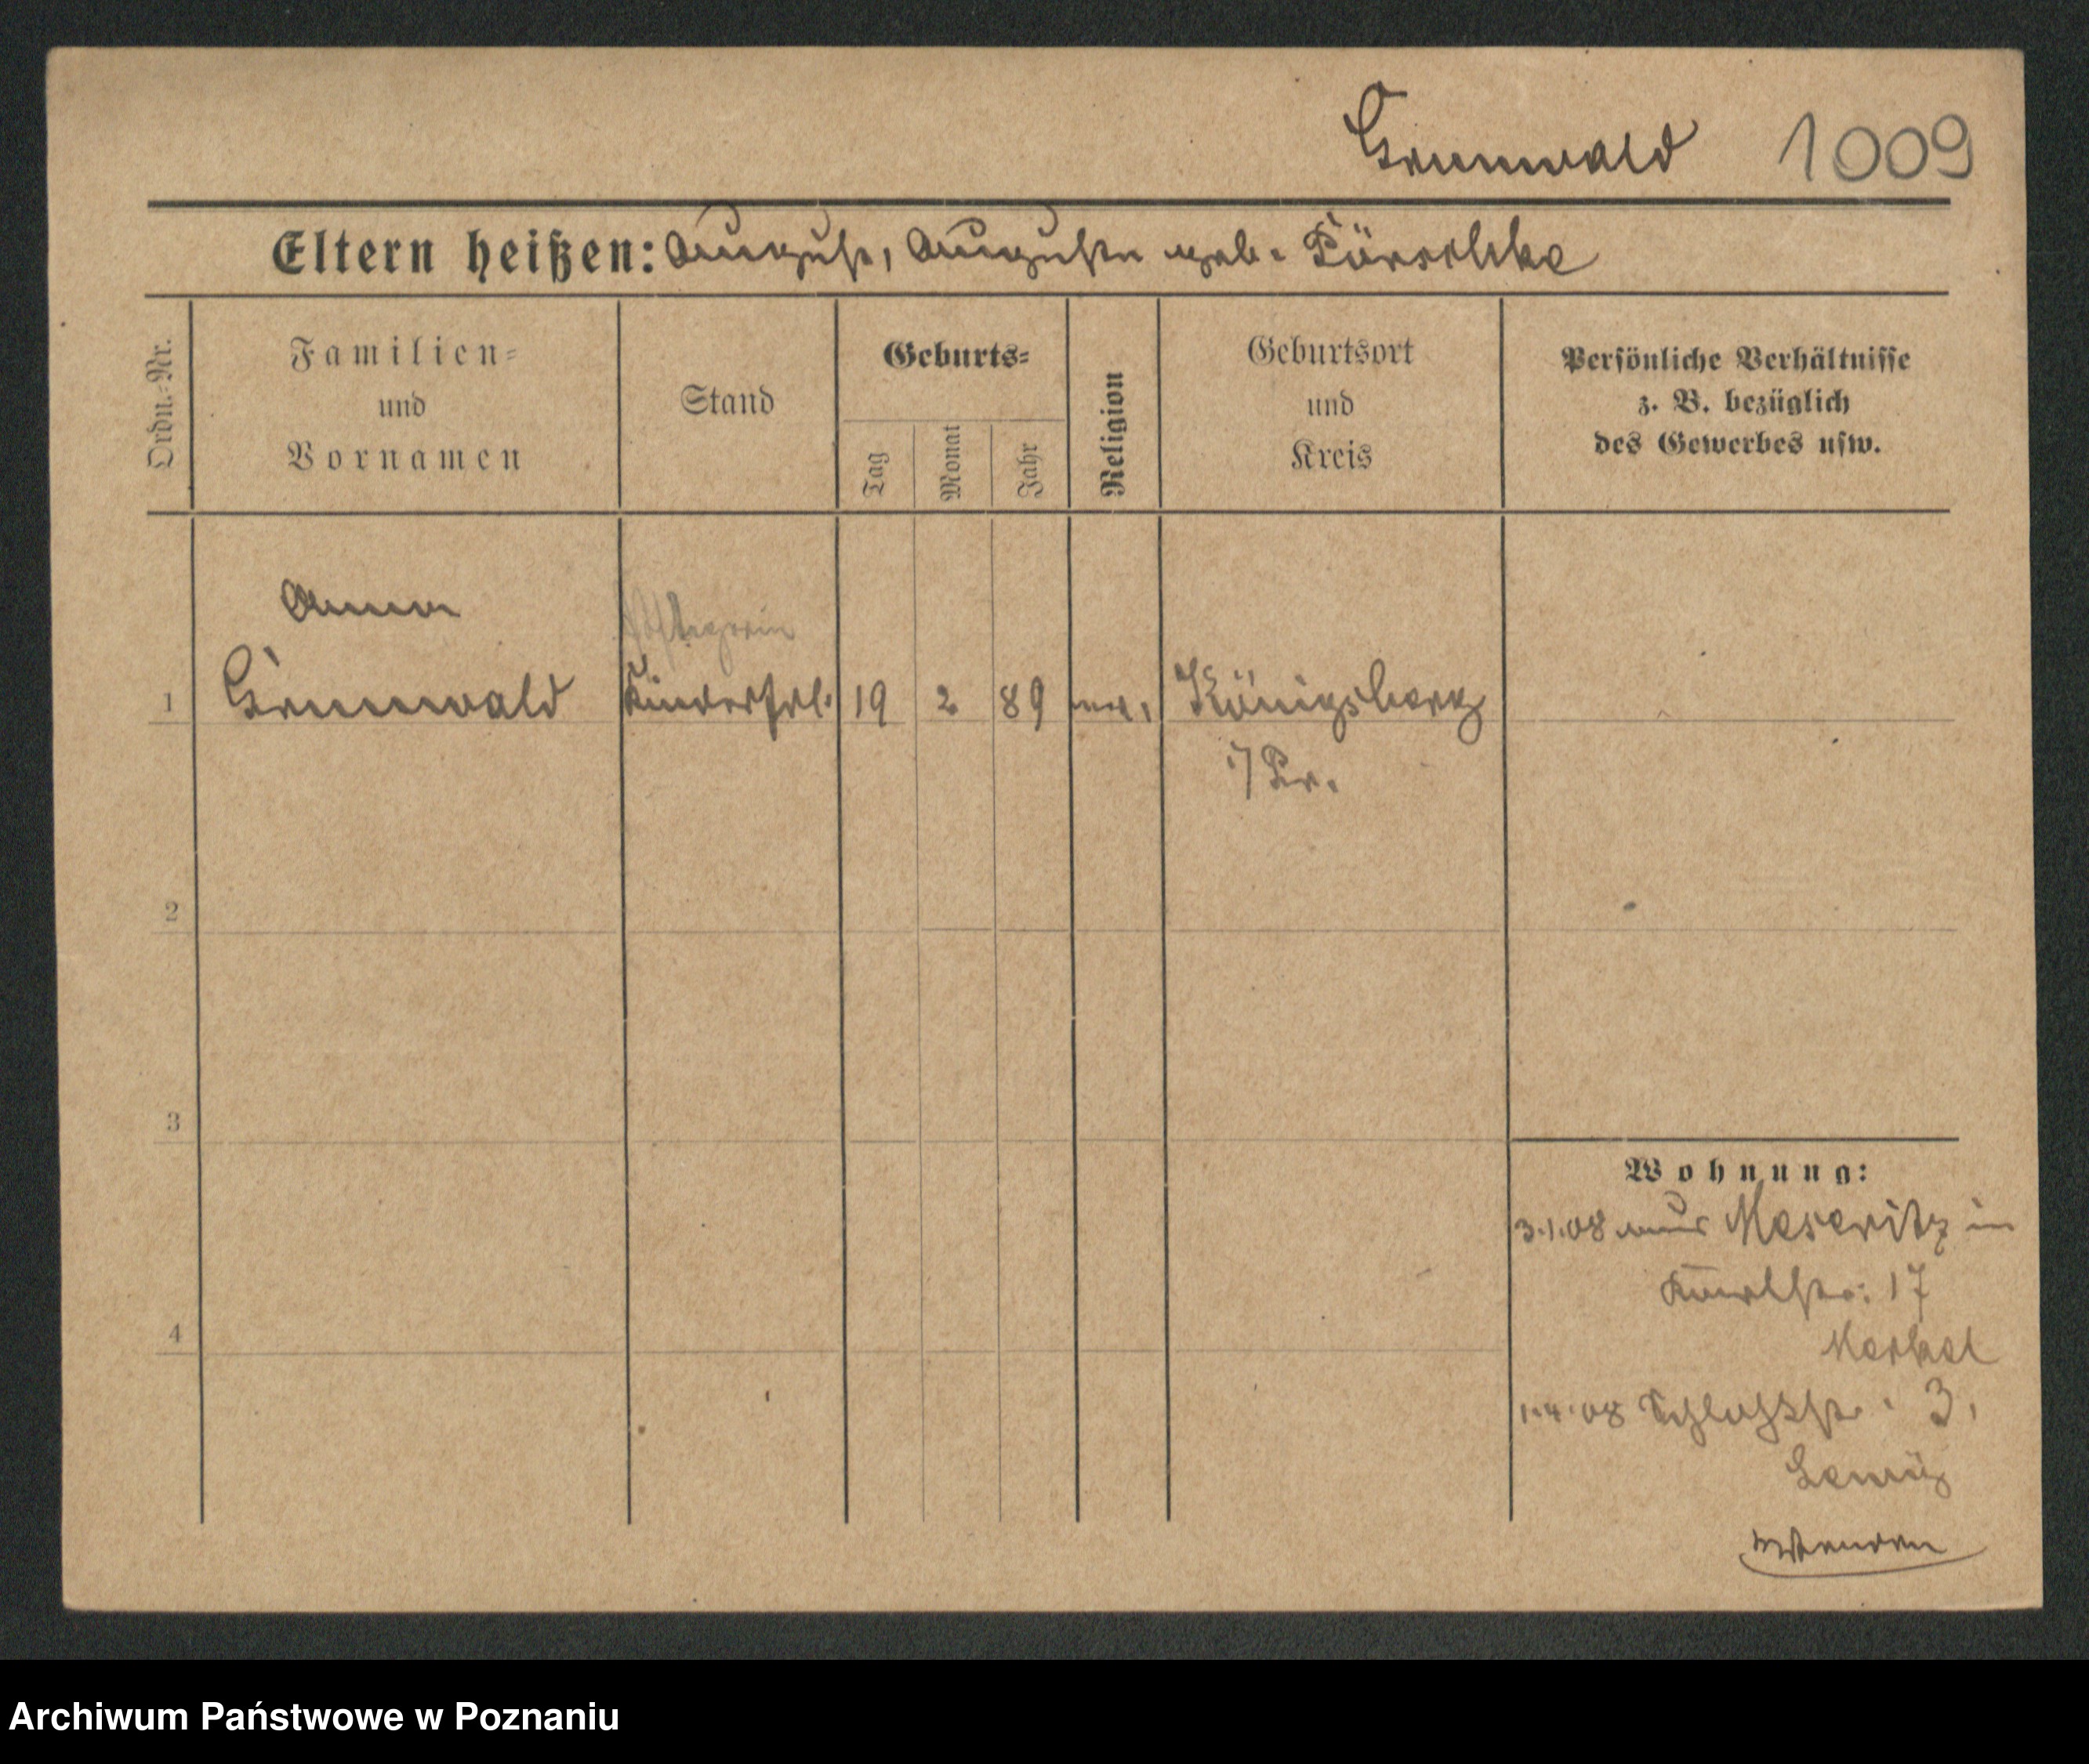 Grunwald 1009
Eltern heißen: August, Auguste geb. Pörschke
Ordn.-Nr.
Familien-
und
Vornamen
Stand
Geburts-
Tag
Monat
Jahr
Religion
Geburtsort
und
Kreis
Persönliche Verhältnisse
z. B. bezüglich
des Gewerbes usw.
Anna
Pflegerin
1 Grunwald Kinderfrl. 19 2 89 ev. Königsberg
i/Pr.
2
3
4
Wohnung:
3.1.08 aus Meseritz in
Karlstr. 17
1.4.08 Schloßstr. 3,
wenden
Archiwum Państwowe w Poznaniu